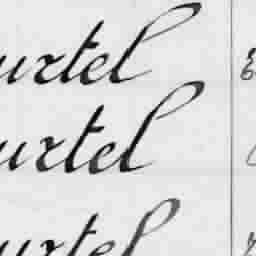 urtel
urtel
urtel